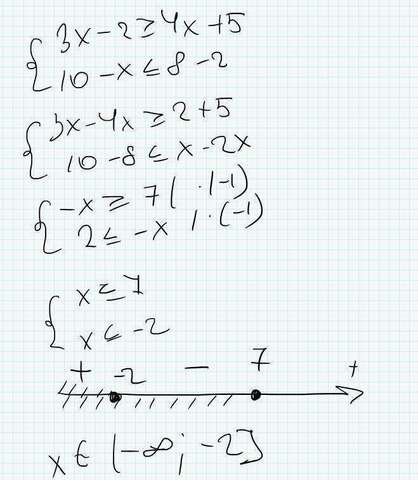 3x-2≥4x+5
10-x≤8-2
3x-4x≥2+5
10-8≤x-2x
-x≥7 | ·(-1)
2≤-x | ·(-1)
x≤7
x≤-2
+ -2 - 7 +
x∈(-∞; -2]